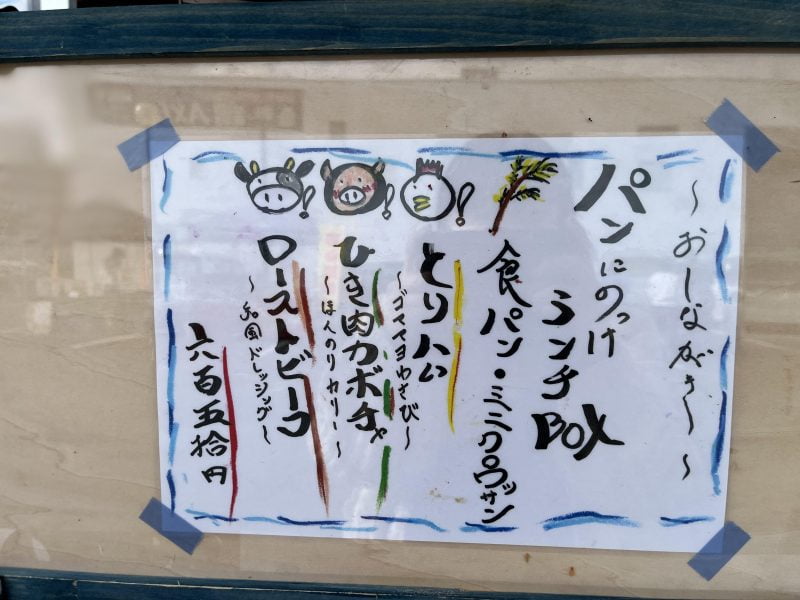 〜おしながき〜
パンにのっけ
ランチBOX
食パン・ミニクロワッサン
とりハム
〜ゴママヨわさび〜
ひき肉カボチャ
〜ほんのりカリー〜
ローストビーフ
〜和風ドレッシング〜
六百五拾円